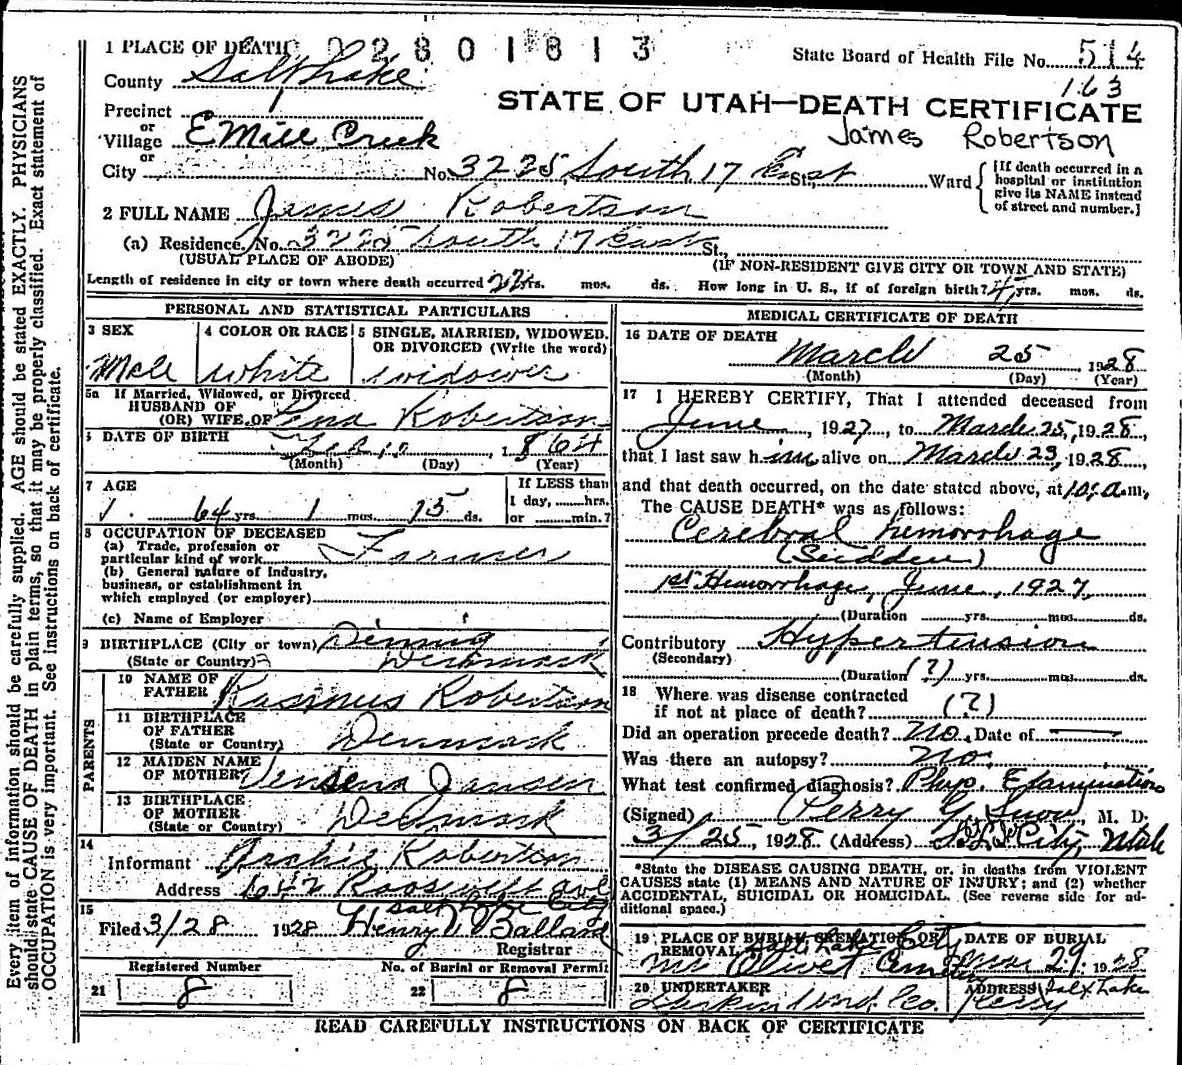 1 PLACE OF DEATH 02801813
State Board of Health File No. 514
163
County Salt Lake
Precinct 1
or
Village E Mill Creek
or
City
STATE OF UTAH—DEATH CERTIFICATE
James Robertson
No. 3225 South 17 East St., Ward
[If death occurred in a hospital or institution give its NAME instead of street and number.]
2 FULL NAME James Robertson
(a) Residence. No. 3225 South 17 East St.,
(USUAL PLACE OF ABODE) (IF NON-RESIDENT GIVE CITY OR TOWN AND STATE)
Length of residence in city or town where death occurred 22 yrs. mos. ds. How long in U. S., if of foreign birth? yrs. mos. ds.
PERSONAL AND STATISTICAL PARTICULARS
3 SEX
Male
4 COLOR OR RACE
White
5 SINGLE, MARRIED, WIDOWED, OR DIVORCED (Write the word)
widower
5a If Married, Widowed, or Divorced
HUSBAND OF
(OR) WIFE OF Lena Robertson
6 DATE OF BIRTH Feb 10, 1864
(Month) (Day) (Year)
7 AGE
64 yrs. 1 mos. 15 ds.
If LESS than
1 day, hrs.
or min.?
8 OCCUPATION OF DECEASED
(a) Trade, profession or
particular kind of work Farmer
(b) General nature of Industry,
business, or establishment in
which employed (or employer)
(c) Name of Employer
9 BIRTHPLACE (City or town)
(State or Country) Denmark
PARENTS
10 NAME OF
FATHER Rasmus Robertson
11 BIRTHPLACE
OF FATHER
(State or Country) Denmark
12 MAIDEN NAME
OF MOTHER Jansen
13 BIRTHPLACE
OF MOTHER
(State or Country) Denmark
14
Informant Archie Robertson
Address 642 Roosevelt Ave
Salt Lake City
15
Filed 3/28 1928 Henry V. Ballard
Registrar
Registered Number
21 8
No. of Burial or Removal Permit
22 8
MEDICAL CERTIFICATE OF DEATH
16 DATE OF DEATH
March 25, 1928
(Month) (Day) (Year)
17 I HEREBY CERTIFY, That I attended deceased from
June, 1927, to March 25, 1928,
that I last saw him alive on March 23, 1928,
and that death occurred, on the date stated above, at 10 a.m.
The CAUSE DEATH* was as follows:
Cerebral hemorrhage
(Sudden)
1st Hemorrhage, June, 1927,
(Duration yrs. mos. ds.
Contributory Hypertension
(Secondary)
(Duration (?) yrs. mos. ds.
18 Where was disease contracted
if not at place of death? (?)
Did an operation precede death? No. Date of
Was there an autopsy? No.
What test confirmed diagnosis? Phys. Examination
(Signed) Perry G. Snow, M. D.
3/25, 1928 (Address) S. L. City, Utah
*State the DISEASE CAUSING DEATH, or, in deaths from VIOLENT
CAUSES state (1) MEANS AND NATURE OF INJURY; and (2) whether
ACCIDENTAL, SUICIDAL OR HOMICIDAL. (See reverse side for ad-
ditional space.)
19 PLACE OF BURIAL, CREMATION OR
REMOVAL Salt Lake City
Mt Olivet Cemetery
DATE OF BURIAL
Mar 29, 1928
20 UNDERTAKER
Und. Co.
ADDRESS Salt Lake
READ CAREFULLY INSTRUCTIONS ON BACK OF CERTIFICATE
Every item of information should be carefully supplied. AGE should be stated EXACTLY. PHYSICIANS
should state CAUSE OF DEATH in plain terms, so that it may be properly classified. Exact statement of
OCCUPATION is very important. See instructions on back of certificate.